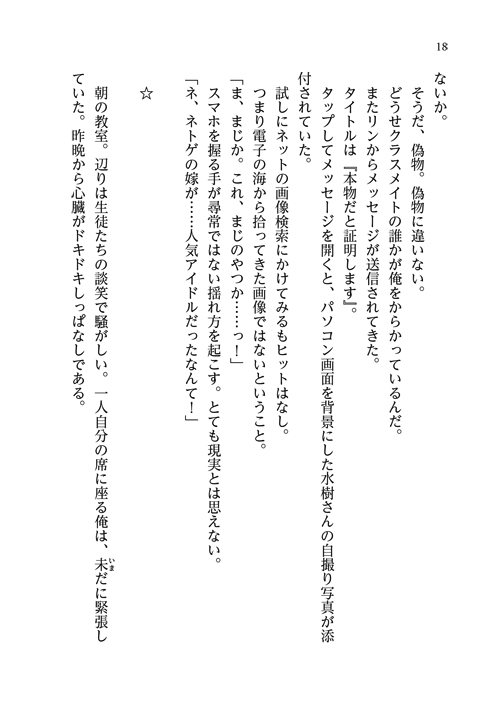 18
ないか。
そうだ、偽物。偽物に違いない。
どうせクラスメイトの誰かが俺をからかっているんだ。
またリンからメッセージが送信されてきた。
タイトルは『本物だと証明します』。
タップしてメッセージを開くと、パソコン画面を背景にした水樹さんの自撮り写真が添
付されていた。
試しにネットの画像検索にかけてみるもヒットはなし。
つまり電子の海から拾ってきた画像ではないということ。
「ま、まじか。これ、まじのやつか……っ！」
スマホを握る手が尋常ではない揺れ方を起こす。とても現実とは思えない。
「ネ、ネトゲの嫁が……人気アイドルだったなんて！」
☆
朝の教室。辺りは生徒たちの談笑で騒がしい。一人自分の席に座る俺は、未だに緊張し
いま
ていた。昨晩から心臓がドキドキしっぱなしである。